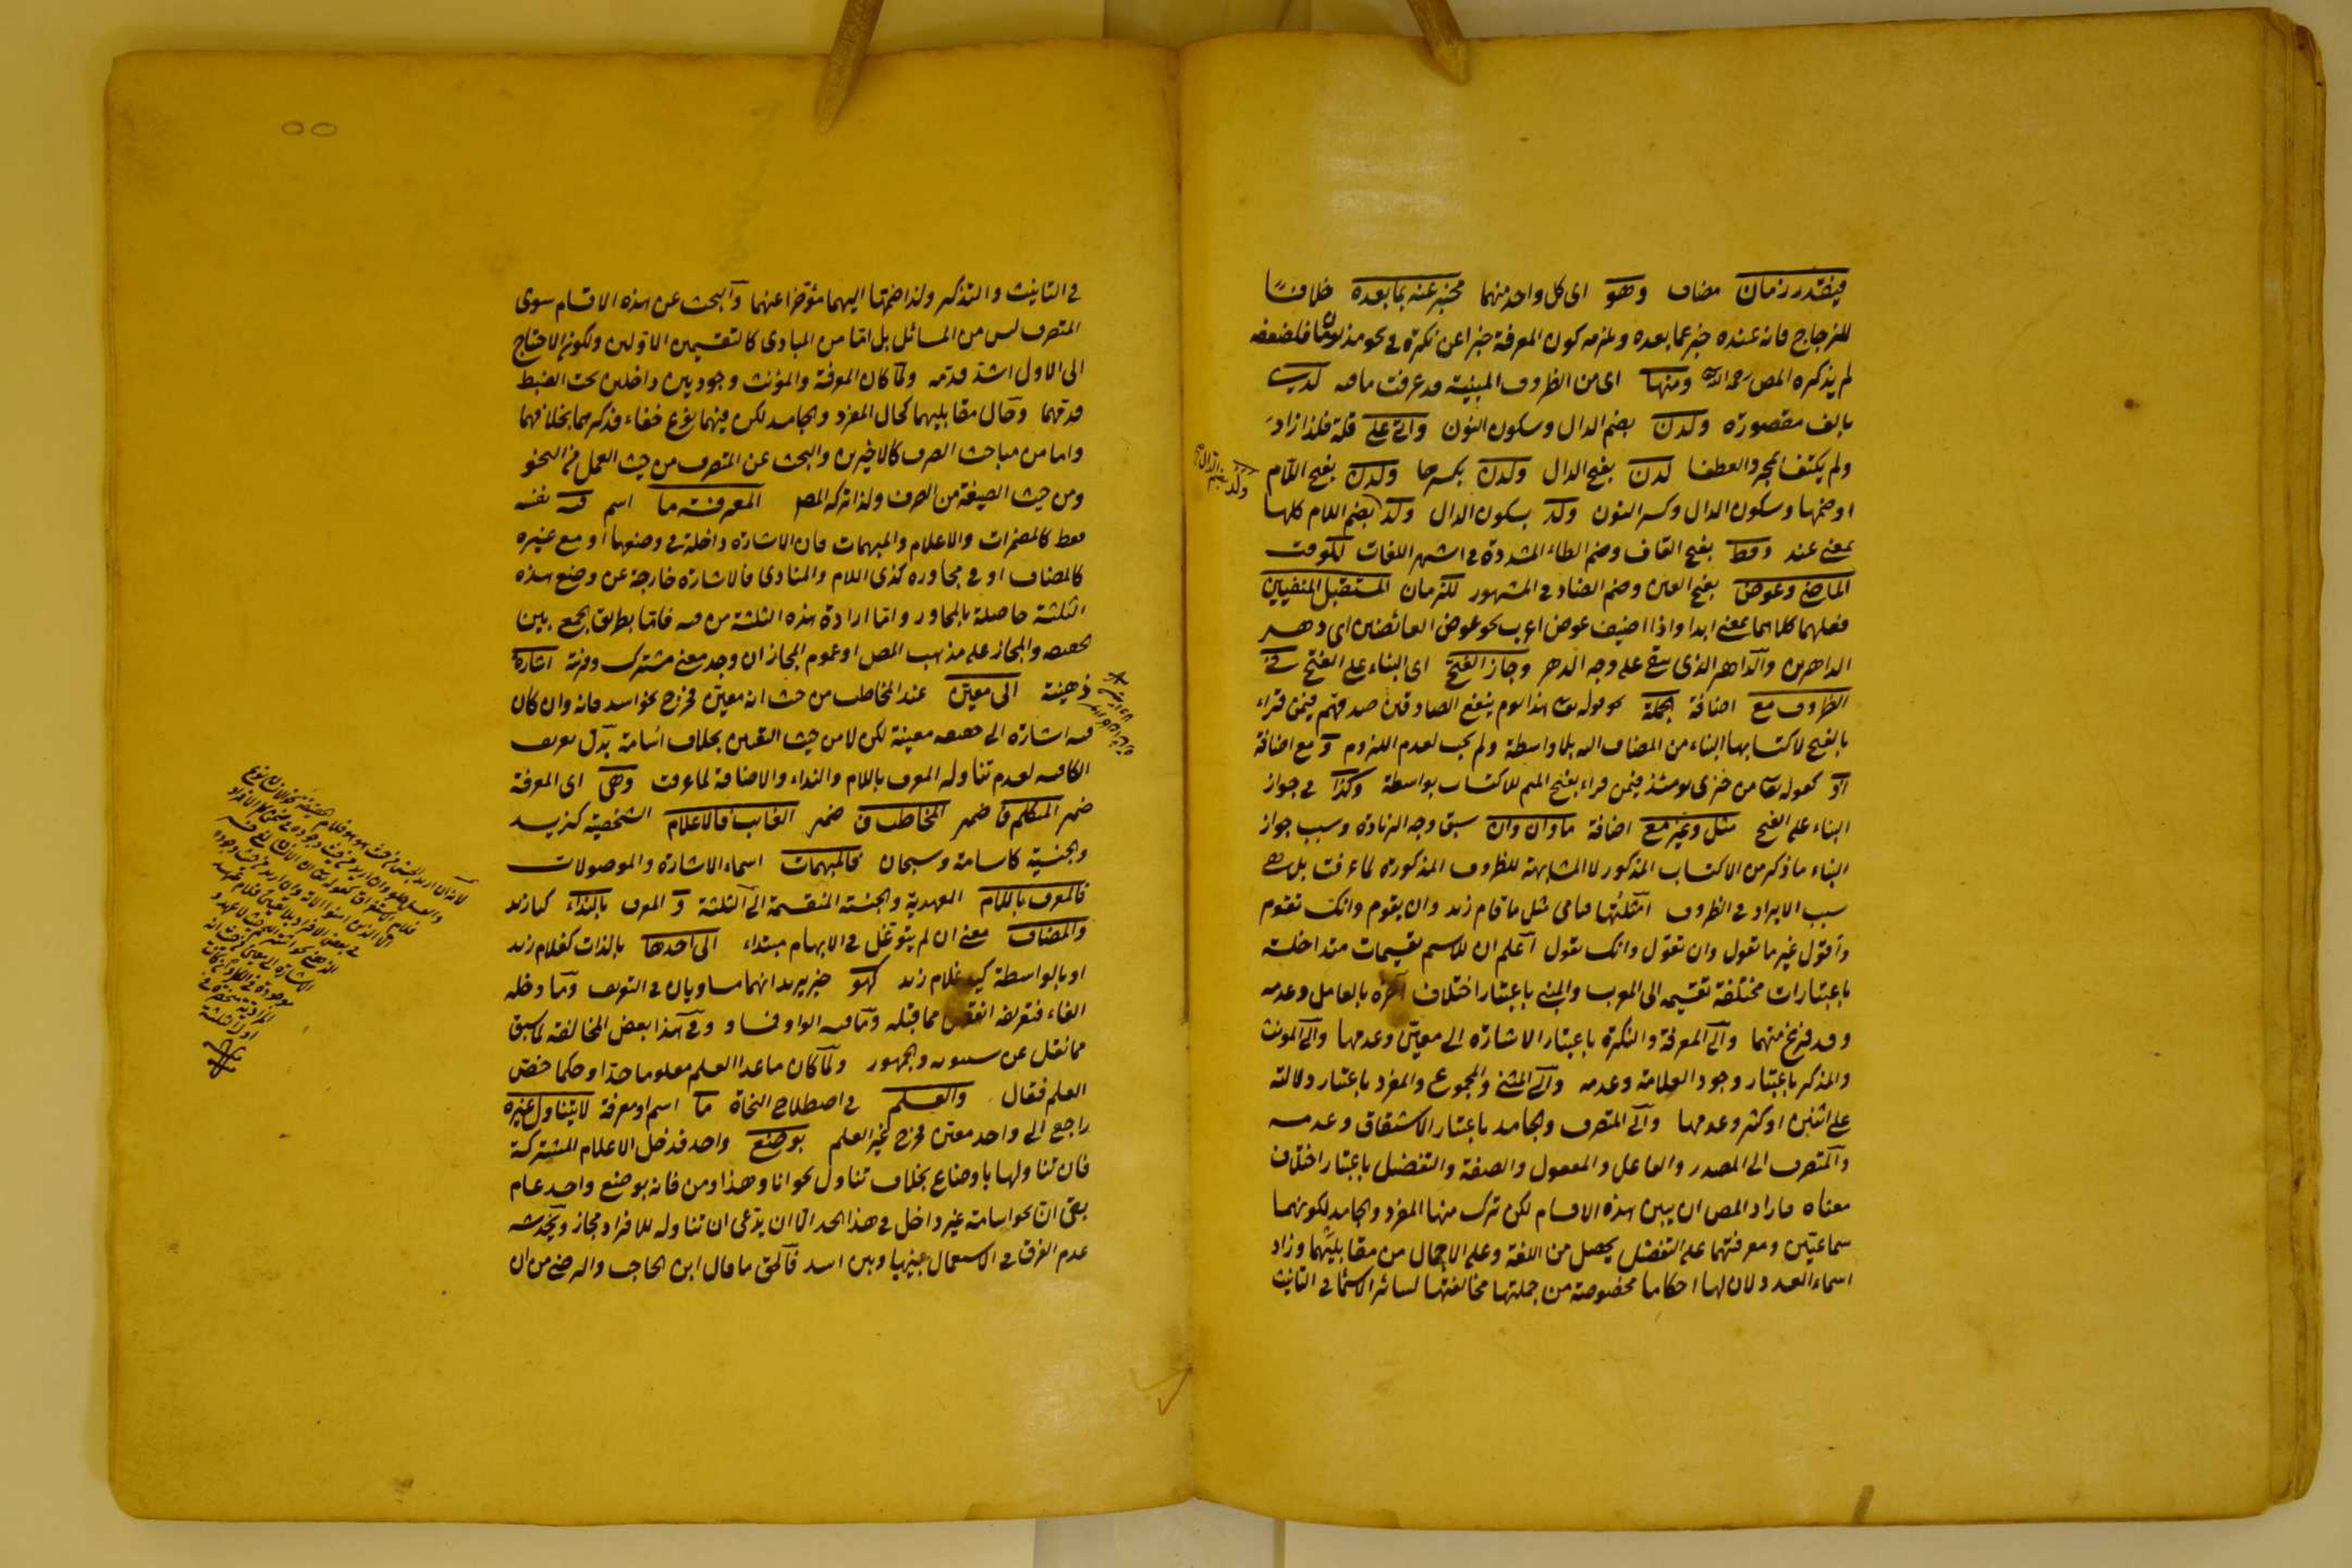 فيقدر زمان مضاف وهو اى كل واحد منهما مخبر عنه بما بعده خلافا
للزجاج فانه عنده خبر عما بعده ويلزمه كون المعرفة خبرا عن نكرة فى نحو مذ يومان فلضعفه
لم يذكره المص رحمه الله ومنها اى من الظروف المبنية قد عرفت ما فيه لدى
بالف مقصورة ولدن بضم الدال وسكون النون واتى على قلة فلذا زاد
ولم يكتف بمجرد العطف لدن بفتح الدال ولدن بكسرها ولدن بفتح اللام
او ضمها وسكون الدال وكسر النون ولد بسكون الدال ولد بضم اللام كلها
ولد بضم الدال
بمعنى عند وقط بفتح القاف وضم الطاء المشددة فى اشهر اللغات لكوقت
الماضى وعوض بفتح العين وضم الضاد فى المشهور للزمان المستقبل المنفيين
فعلهما كلاهما بمعنى ابدا واذا اضيف عوض اعرب نحو عوض العائضين اى دهر
الداهرين والداهر الذى يبقى على وجه الدهر وجاز الفتح اى البناء على الفتح فى
الظروف مع اضافة الجملة كقوله تعا هذا يوم ينفع الصادقين صدقهم فيمن قراء
بالفتح لاكتسابها البناء من المضاف اليه بلا واسطة ولم يجب لعدم اللزوم ومع اضافة
اذ كقوله تعا من خزى يومئذ فيمن قراء بفتح الميم للاكتساب بواسطة وكذا فى جواز
البناء على الفتح مثل وغير مع اضافة ما وان وان سبق وجه الزيادة وسبب جواز
البناء ما ذكر من الاكتساب المذكور لا المشابهة للظروف المذكورة لما عرفت بل هى
سبب الايراد فى الظروف امثلتها قيامى مثل ما قام زيد وان يقوم وانك تقوم
واقول غير ما تقول وان تقول وانك تقول اعلم ان للاسم تقسيمات متداخلة
باعتبارات مختلفة تقسيمه الى المعرب والمبنى باعتبار اختلاف آخره بالعامل وعدمه
وقد فرغ منهما والى المعرفة والنكرة باعتبار الاشارة الى معين وعدمها والى المونث
والمذكر باعتبار وجود العلامة وعدمه والى المثنى والمجموع والمفرد باعتبار دلالته
على اثنين او كثر وعدمها والى المتصرف والجامد باعتبار الاشتقاق وعدمه
والمتصرف الى المصدر والفاعل والمفعول والصفة والتفضيل باعتبار اختلاف
معناه فاراد المص ان يبين هذه الاقسام لكن ترك منها المفرد والجامد لكونهما
سماعيين ومعرفتهما على التفصيل يحصل من اللغة وعلى الاجمال من مقابليهما وزاد
اسماء العدد لان لها احكاما مخصوصة من جملتها مخالفتها لسائر الاسماء فى التانيث
فى التانيث والتذكير ولذا ضمها اليهما مؤخرا عنهما والبحث عن هذه الاقسام سوى
المتصرف ليس من المسائل بل اما من المبادى كالتقسيمين الاولين ولكون الاحتياج
الى الاول اشد قدمه ولما كان المعرفة والمؤنث وجوديين داخلين تحت الضبط
قدمهما وحال مقابليهما كحال المفرد والجامد لكن فيهما نوع خفاء فذكرهما بخلافهما
واما من مباحث الصرف كالاخيرين والبحث عن المتصرف من حيث العمل من النحو
ومن حيث الصيغة من الصرف ولذا تركه المص المعرفة ما اسم فيه نفسه
فقط كالمضمرات والاعلام والمبهمات فان الاشارة داخلة فى وضعها او مع غيره
كالمضاف او فى مجاوره كذى اللام والمنادى فالاشارة خارجة عن وضع هذه
الثلثة حاصلة بالمجاور واما ارادة هذه الثلثة من فيه فاما بطريق الجمع بين
الحقيقة والمجاز على مذهب المص او عموم المجاز ان وجد معنى مشترك وقرينة اشارة
ذهنية الى معين عند المخاطب من حيث انه معين فخرج نحو اسد فانه وان كان
فيه اشارة الى حقيقة معينة لكن لا من حيث التعيين بخلاف اسامة بدل تعريف
الكافية لعدم تناوله المعرف باللام والنداء والاضافة لما عرفت وهى اى المعرفة
ضمير المتكلم فا ضمير المخاطب فا ضمير الغائب فالاعلام الشخصية كزيد
والجنسية كاسامة وسبحان فالمبهمات اسماء الاشارة والموصولات
فالمعرف باللام العهدية والجنسية المنقسمة الى الثلثة والمعرف بالنداء كيا زيد
والمضاف معنى ان لم يتوغل فى الابهام مبتداء الى احدها بالذات كغلام زيد
او بالواسطة كيد غلام زيد كهو خبر يريد انهما مساويان فى التعريف وما دخله
الفاء فتعريفه انقص مما قبله وما فيه الواو فمساو وفى هذا بعض المخالفة لما سبق
مما نقل عن سيبويه والجمهور ولما كان ماعدا العلم معلوما حدا وحكما خص
العلم فقال والعلم فى اصطلاح النحاة ما اسم او معرفة لا يتناول غيره
راجع الى واحد معين فخرج غير العلم بوضع واحد فدخل الاعلام المشتركة
فان تناولها باوضاع بخلاف تناول نحو انا وهذا ومن فانه بوضع واحد عام
بقى ان نحو اسامة غير داخل فى هذا الحد الا ان يدعى ان تناوله للافراد مجاز ويخدشه
عدم الفرق فى الاستعمال بينها وبين اسد فالحق ما قال ابن الحاجب والرضى من ان